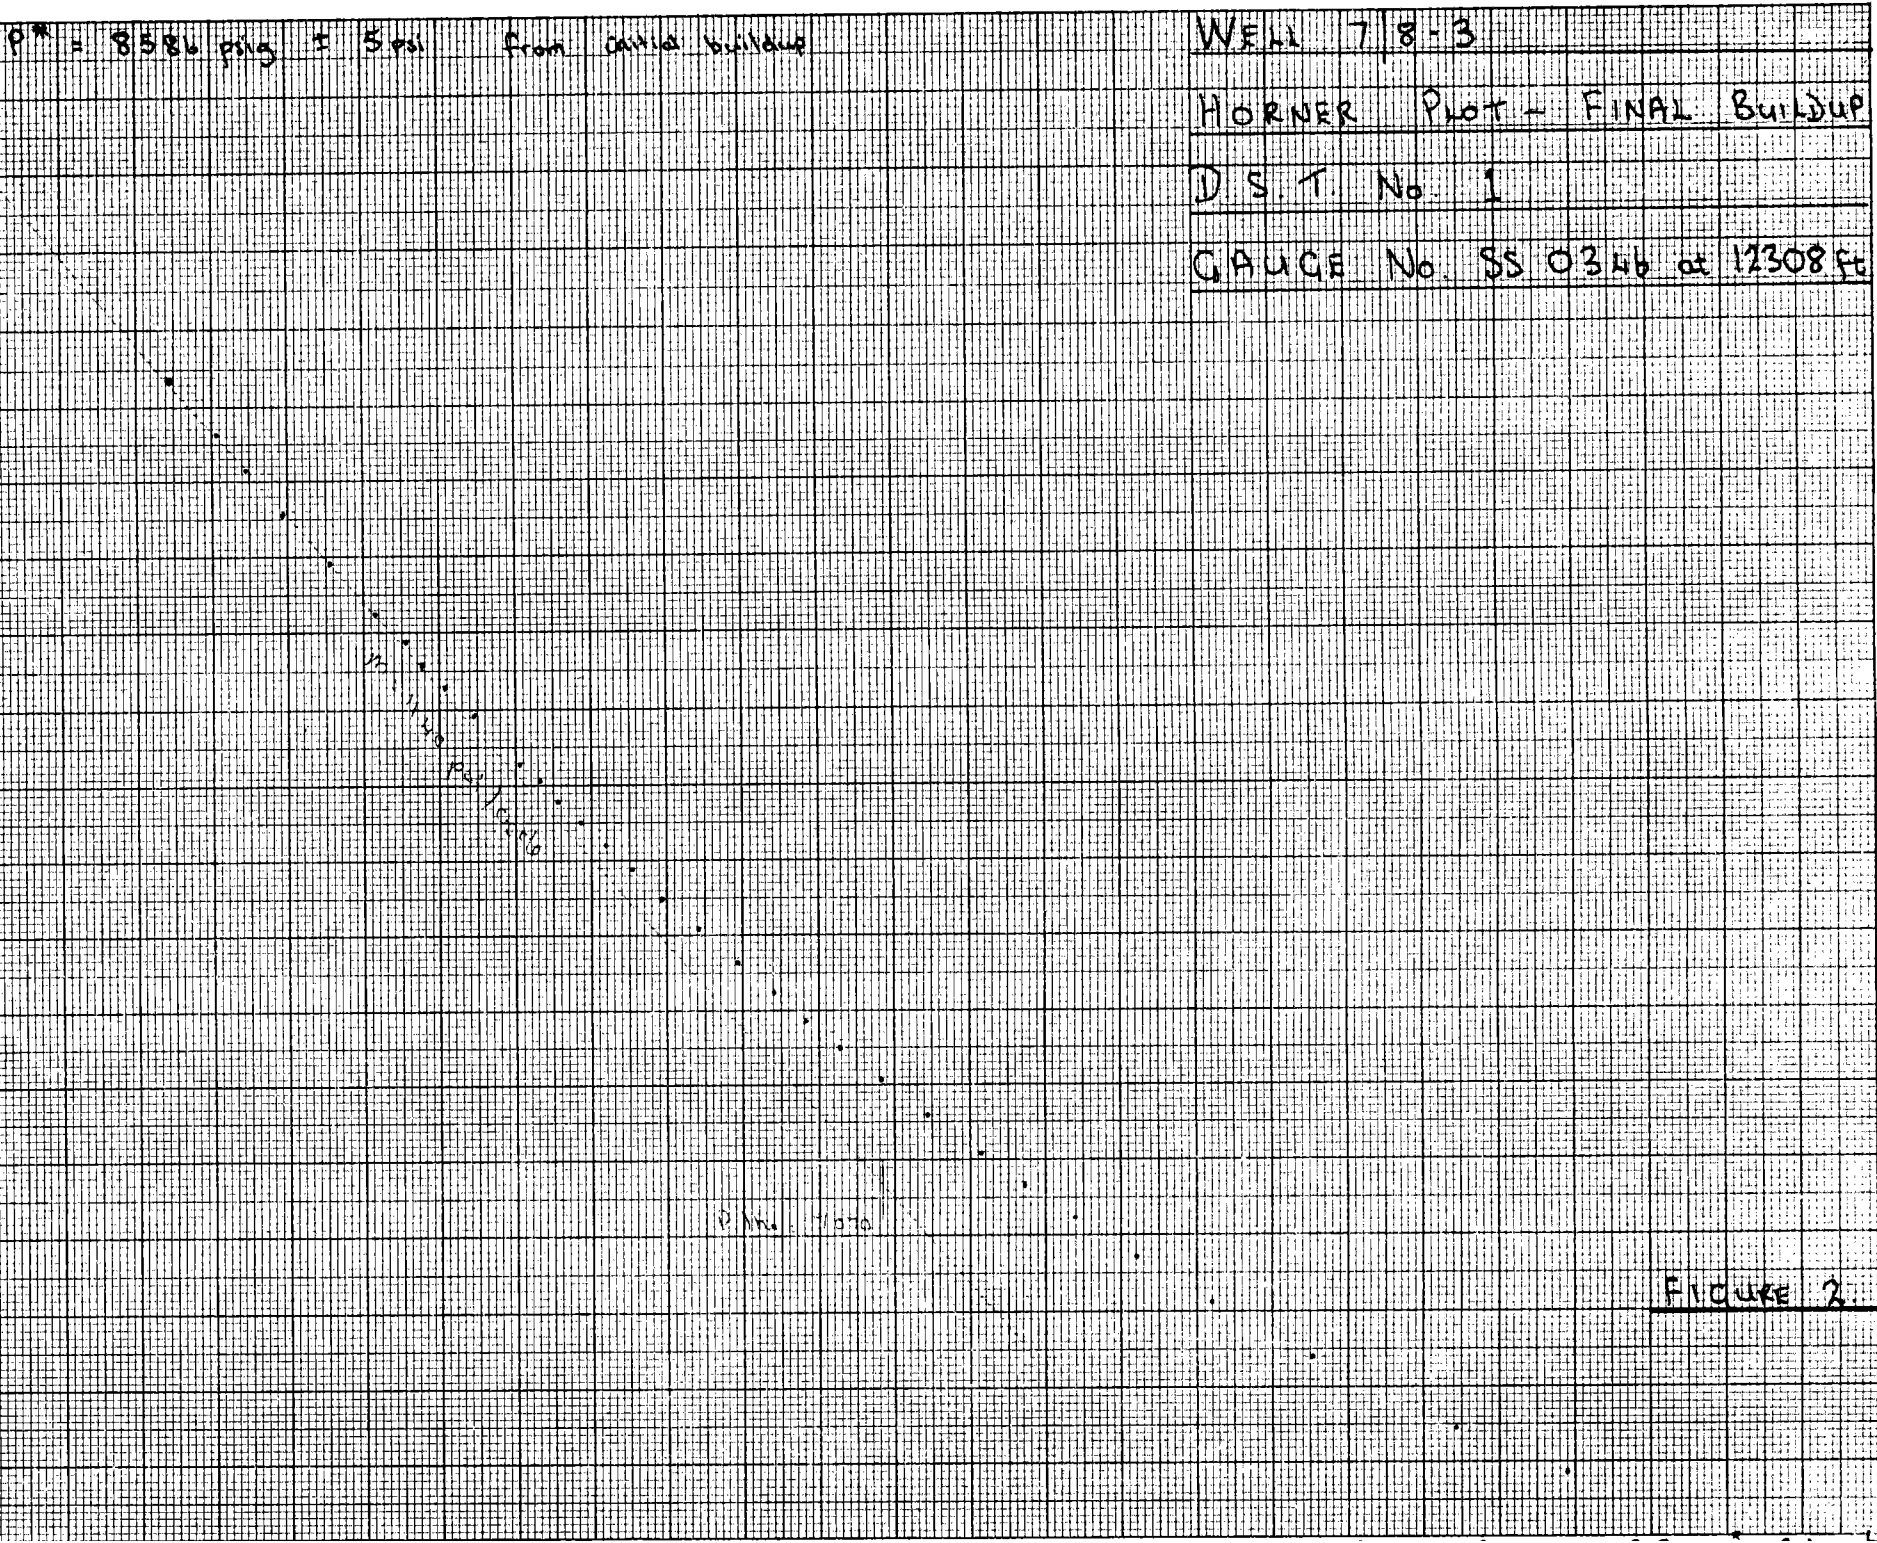 P* = 8586 psig ± 5 psi from initial buildup
WELL 7/8-3
HORNER PLOT - FINAL BUILDUP
D.S.T. No. 1
GAUGE No. SS 0346 at 12308 ft
psi / cycle
P 1hr = 7070
FIGURE 2.